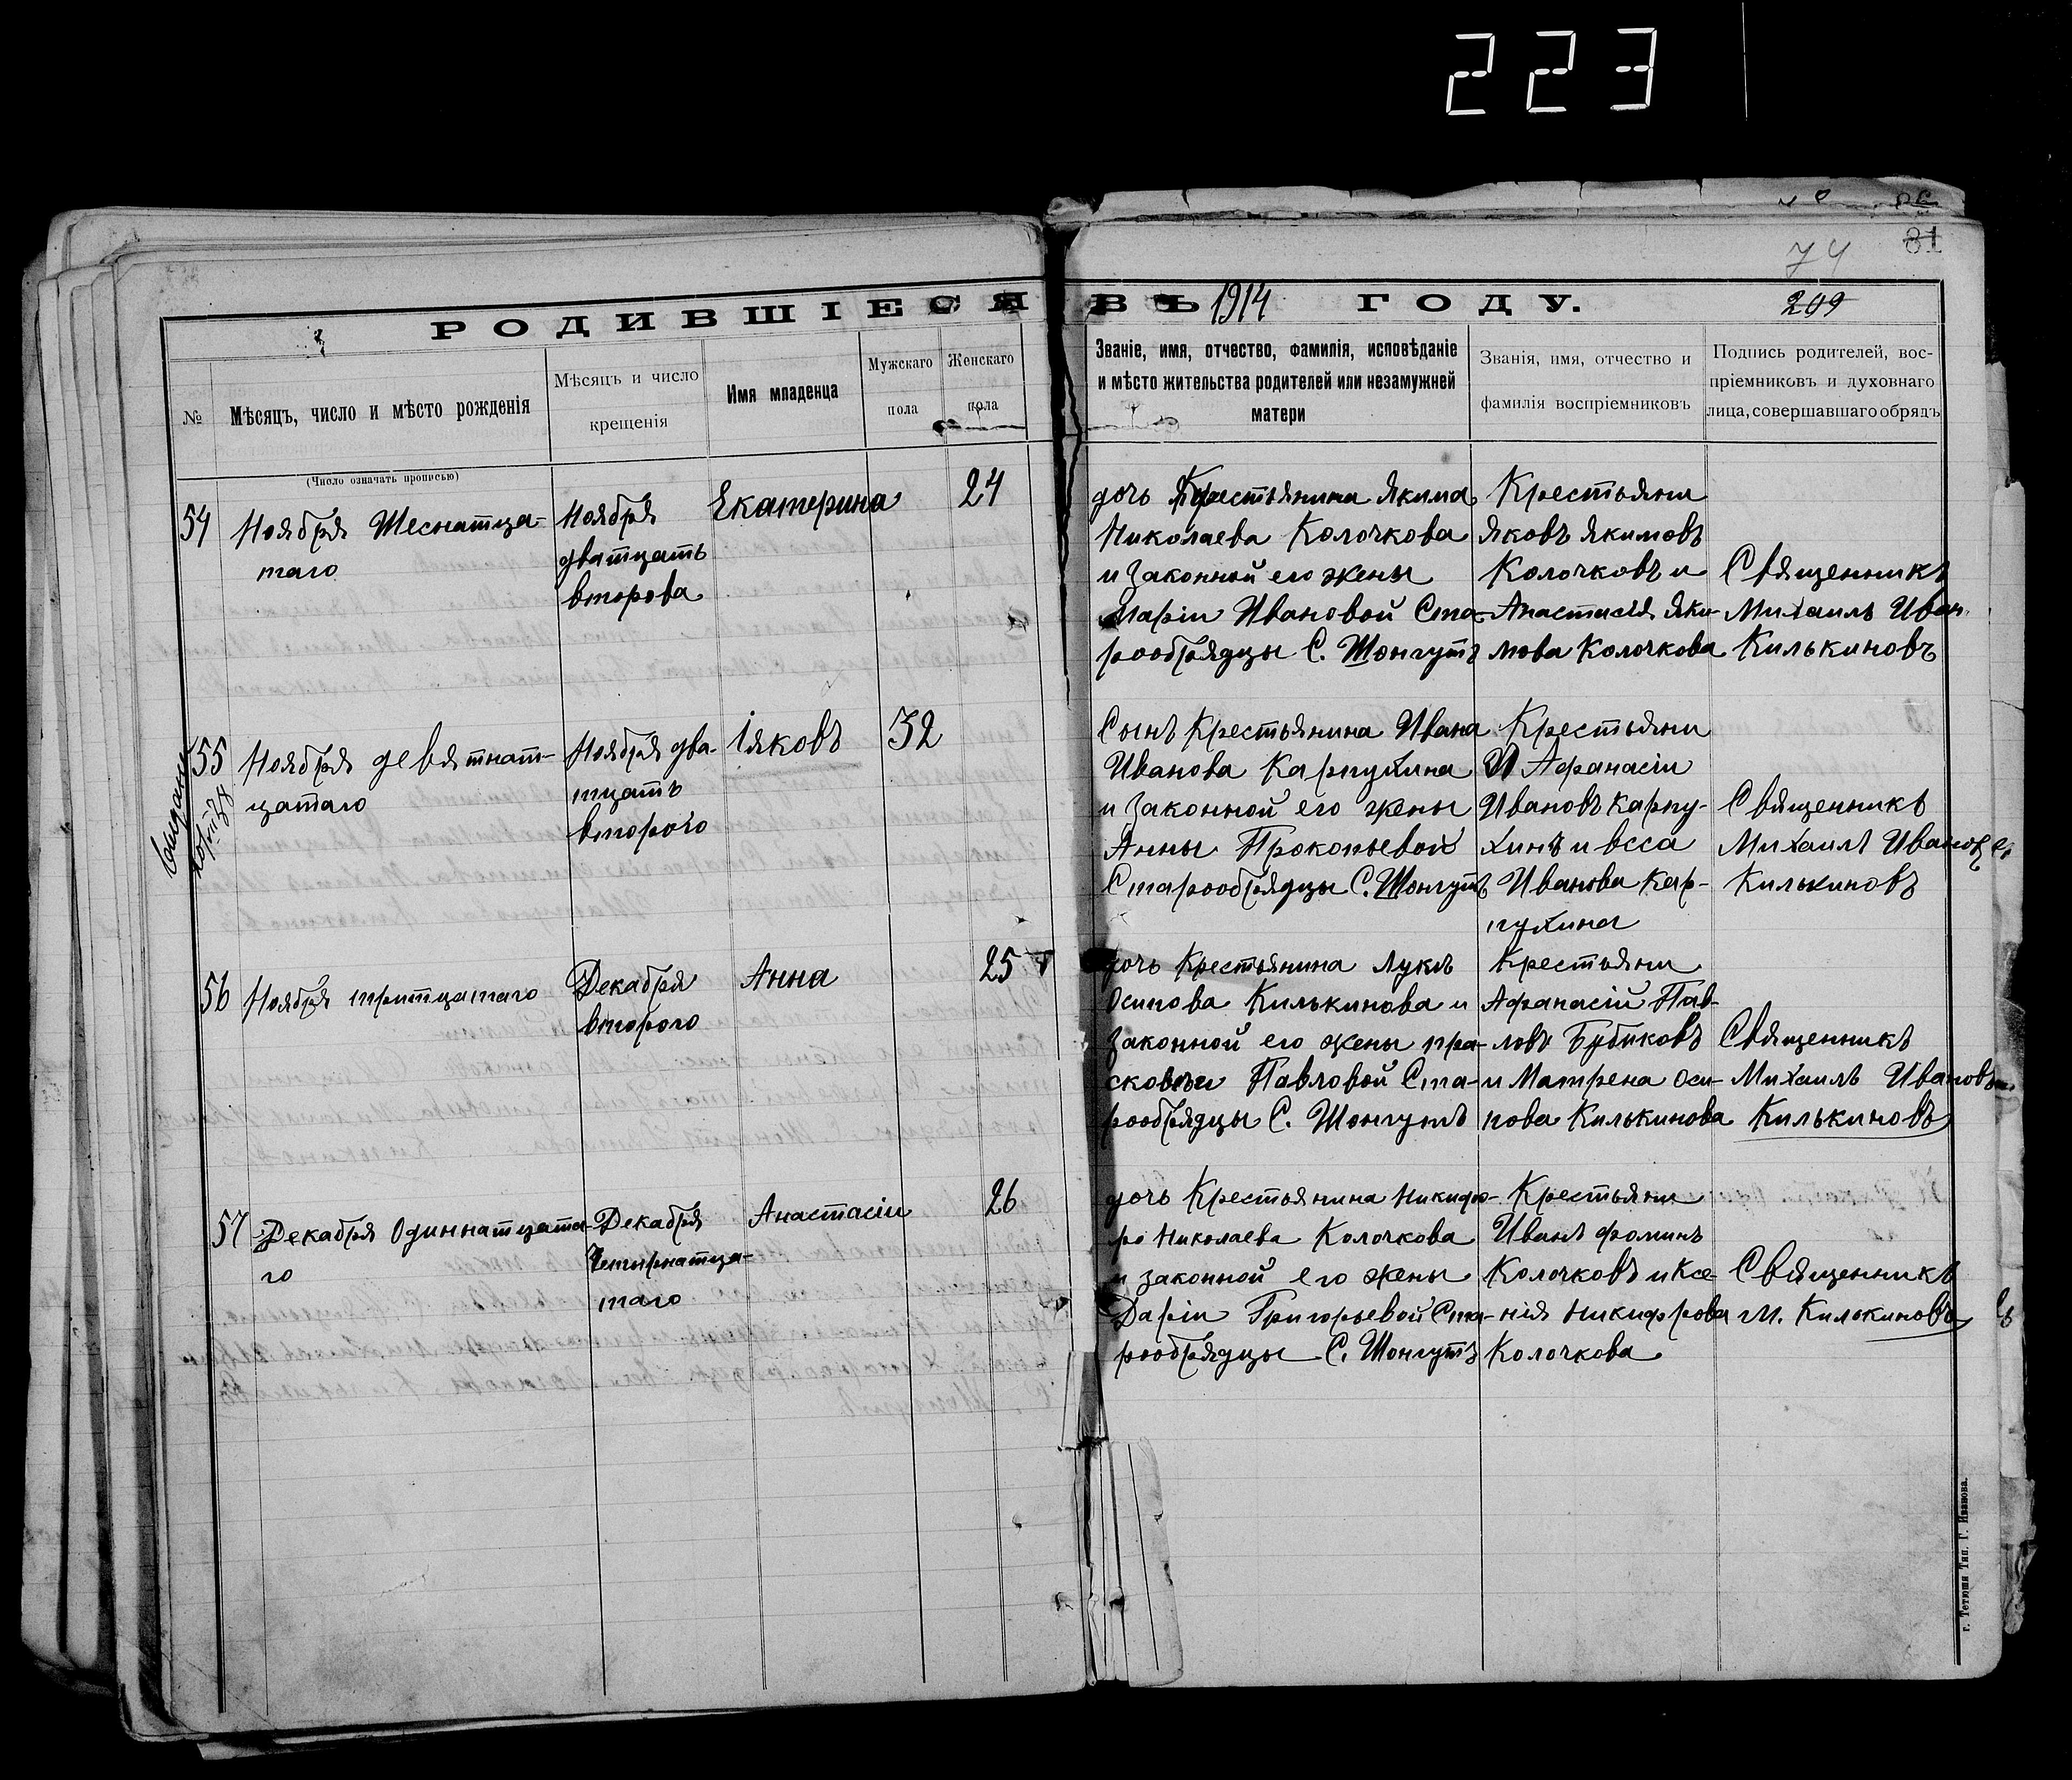 223
81
74
РОДИВШІЕСЯ ВЪ 1914 ГОДУ.
209
№
Мѣсяцъ, число и мѣсто рожденія
(Число означать прописью)
Мѣсяцъ и число
крещенія
Имя младенца
Мужскаго
пола
Женскаго
пола
Званіе, имя, отчество, фамилія, исповѣданіе
и мѣсто жительства родителей или незамужней
матери
Званія, имя, отчество и
фамилія воспріемниковъ
Подпись родителей, вос-
пріемниковъ и духовнаго
лица, совершавшаго обрядъ
54
Ноября Шеснатца-
таго
Ноября
дватцать
второва
Екатерина
24
дочь Крестьянина Якима
Николаева Колочкова
и Законной его жены
Маріи Ивановой Ста-
рообрядцы С. Шонгутъ
Крестьяни
Яковъ Якимовъ
Колочковъ и
Анастасія Яки-
мова Колочкова
Священникъ
Михаилъ Иван
Килькиновъ
55
Ноября девятнат-
цатаго
Ноября два-
тцать
второго
Іяковъ
32
Сынъ Крестьянина Ивана
Иванова Карпухина
и Законной его жены
Анны Прокопьевой
Старообрядцы С. Шонгутъ
Крестьяни
Афанасіи
Ивановъ Карпу-
хинъ и васса
Иванова Кар-
пухина
Священникъ
Михаилъ Иванов
Килькиновъ
56
Ноября тритцатаго
Декабря
второго
Анна
25
дочь Крестьянина Лукѣ
Осипова Килькинова и
Законной его жены пра-
сковьи Павловой Ста-
рообрядцы С. Шонгутъ
Крестьяни
Афанасій Пав-
ловъ Бубиковъ
и Матрена Оси-
пова Килькинова
Священникъ
Михаилъ Ивановъ
Килькиновъ
57
Декабря Одиннатцата-
го
Декабря
Четырнатца-
таго
Анастасіи
26
дочь Крестьянина Никифо-
ро Николаева Колочкова
и законной его жены
Даріи Григорьевой Ста-
рообрядцы С. Шонгутъ
Крестьяни
Иванъ фоминъ
Колочковъ и Ксе-
нія Никифрова
Колочкова
Священникъ
М. Килькиновъ
г. Тетюши Тип. Г. Иванова.